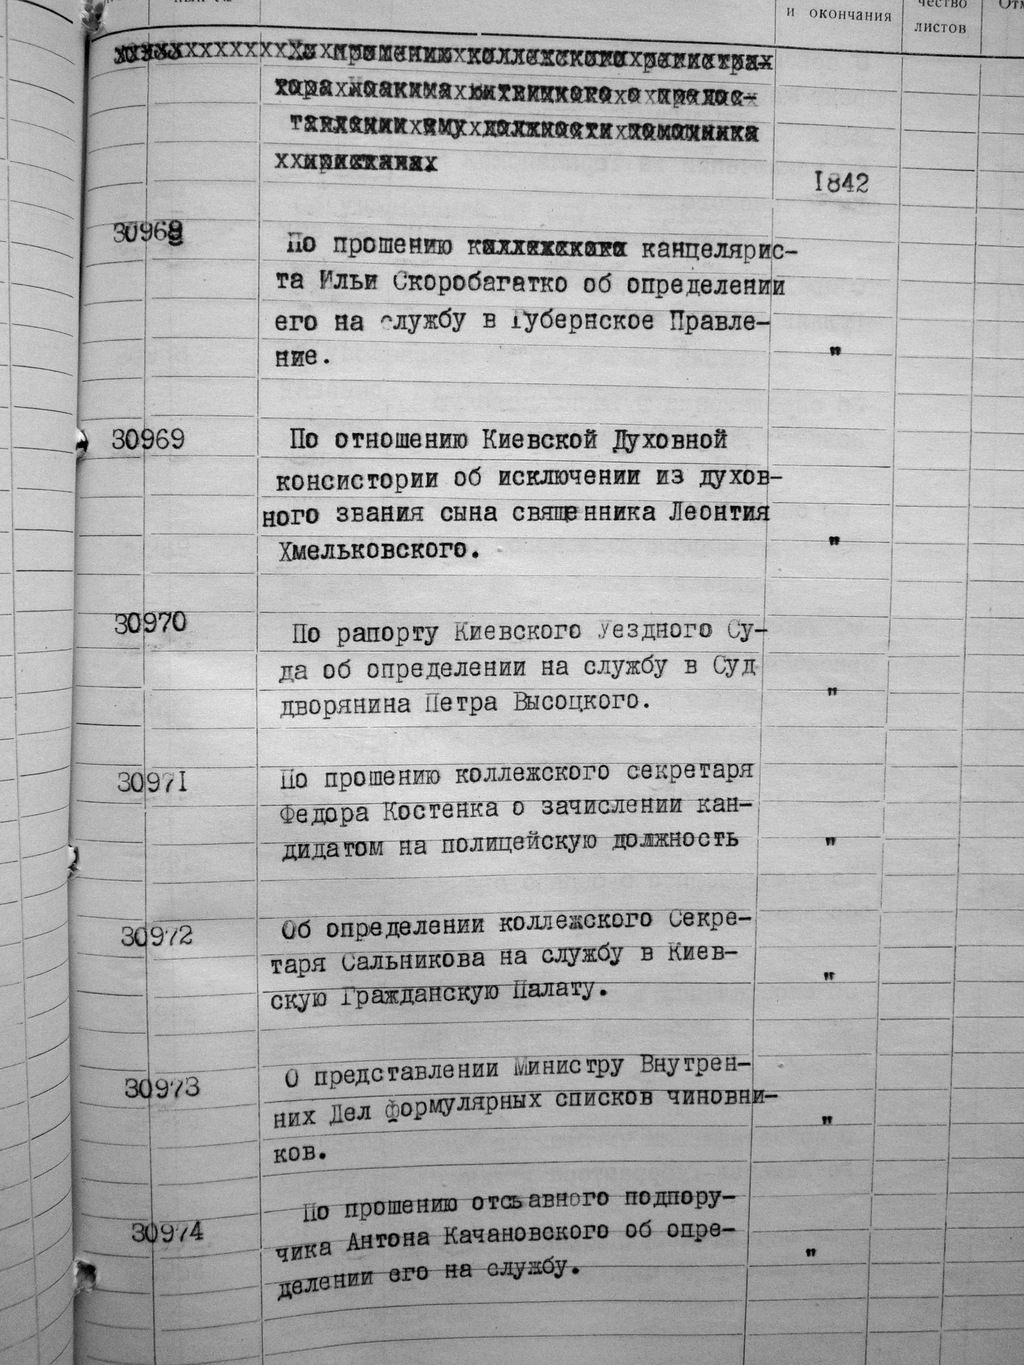 и окончания
чество
листов
По прошению коллежского регистра-
1842
30968
По прошению коллежского канцелярис-
та Ильи Скоробагатко об определении
его на службу в Губернское Правле-
ние.
"
30969
По отношению Киевской Духовной
консистории об исключении из духов-
ного звания сына священника Леонтия
Хмельковского.
"
30970
По рапорту Киевского Уездного Су-
да об определении на службу в Суд
дворянина Петра Высоцкого.
"
30971
По прошению коллежского секретаря
Федора Костенка о зачислении кан-
дидатом на полицейскую должность
"
30972
Об определении коллежского Секре-
таря Сальникова на службу в Киев-
скую Гражданскую Палату.
"
30973
О представлении Министру Внутрен-
них Дел формулярных списков чиновни-
ков.
"
30974
По прошению отсьавного подпору-
чика Антона Качановского об опре-
делении его на службу.
"